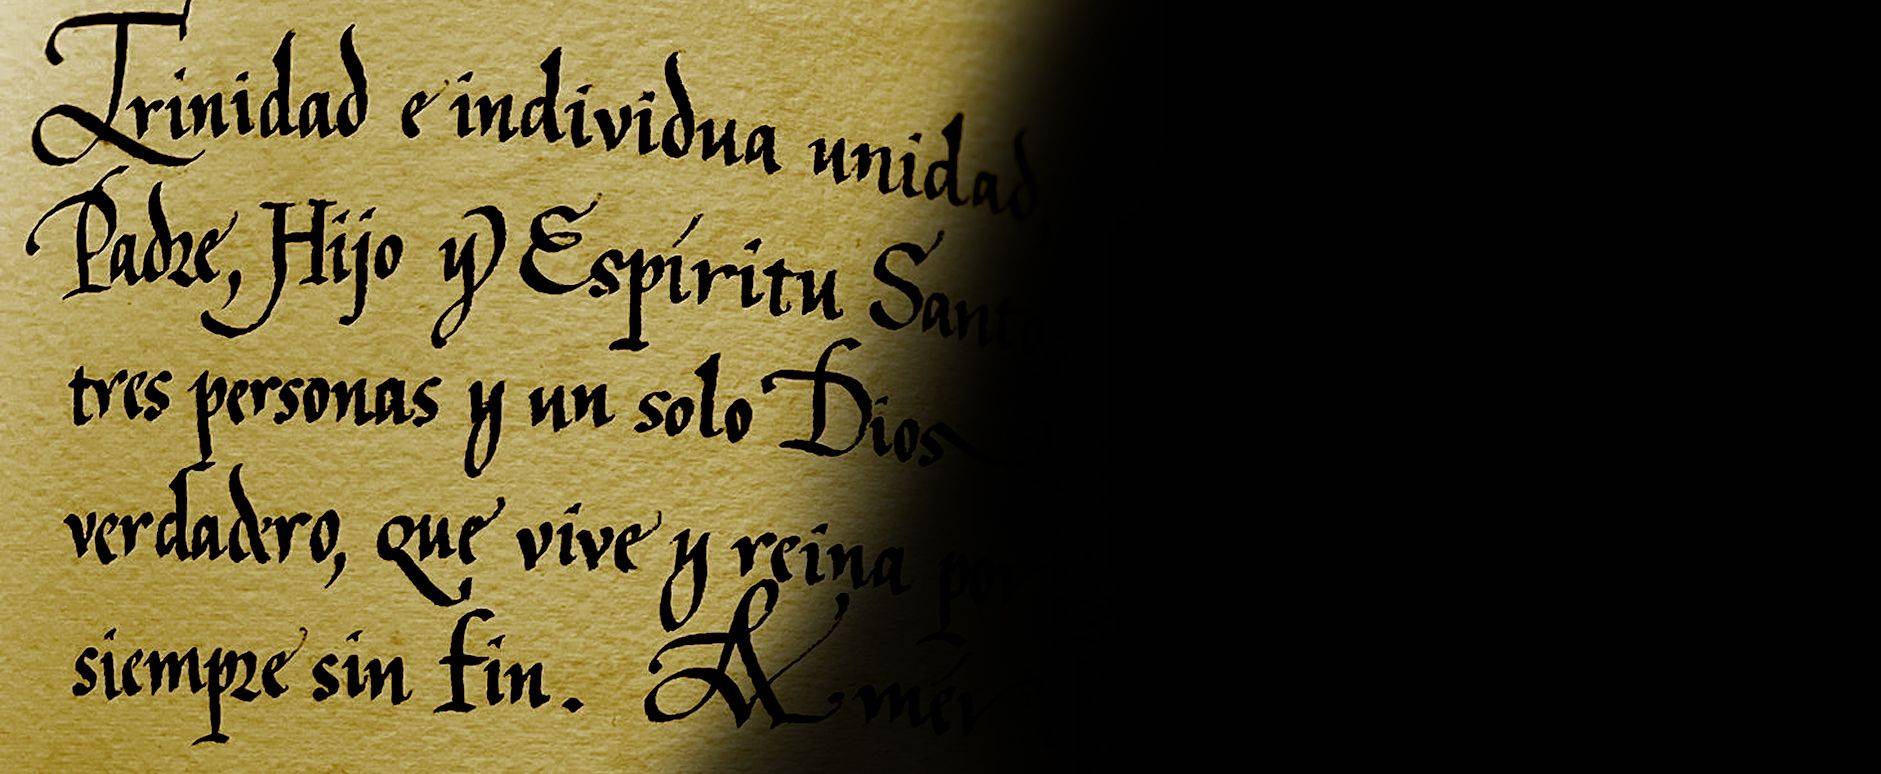 Trinidad e individua unidad
Padre, Hijo y Espíritu Santo
tres personas y un solo Dios
verdadero, que vive y reina por
siempre sin fin. Amén